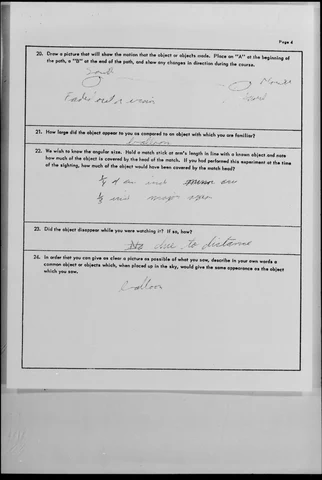 Page 4
20. Draw a picture that will show the motion that the object or objects made. Place an "A" at the beginning of
the path, a "B" at the end of the path, and show any changes in direction during the course.
21. How large did the object appear to you as compared to an object with which you are familiar?
balloon
22. We wish to know the angular size. Hold a match stick at arm's length in line with a known object and note
how much of the object is covered by the head of the match. If you had performed this experiment at the time
of the sighting, how much of the object would have been covered by the match head?
of an inch
23. Did the object disappear while you were watching it? If so, how?
due to distance
24. In order that you can give as clear a picture as possible of what you saw, describe in your own words a
common object or objects which, when placed up in the sky, would give the same appearance as the object
which you saw.
balloon